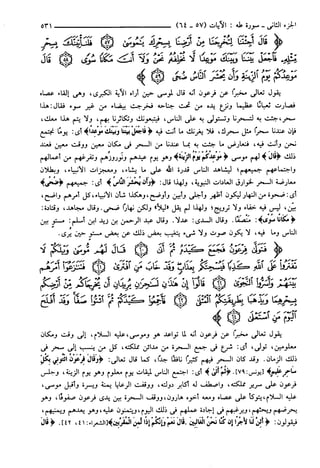 الجزء الثاني - سورة طه : الآيات (٥٧ - ٦٤) ٥٣١
قَالَ أَجِئْتَنَا لِتُخْرِجَنَا مِنْ أَرْضِنَا بِسِحْرِكَ يَٰمُوسَىٰ ۝ فَلَنَأْتِيَنَّكَ بِسِحْرٍ
مِّثْلِهِ فَاجْعَلْ بَيْنَنَا وَبَيْنَكَ مَوْعِدًا لَّا نُخْلِفُهُ نَحْنُ وَلَا أَنتَ مَكَانًا سُوًى ۝ قَالَ
مَوْعِدُكُمْ يَوْمُ الزِّينَةِ وَأَن يُحْشَرَ النَّاسُ ضُحًى ۝
يقول تعالى مخبراً عن فرعون أنه قال لموسى حين أراه الآية الكبرى، وهي إلقاء عصاه
فصارت ثعباناً عظيماً ونزع يده من تحت جناحه فخرجت بيضاء من غير سوء فقال: هذا
سحر، جئت به لتسحرنا وتستولي به على الناس، فيتبعونك وتكاثرنا بهم، ولا يتم هذا معك،
فإن عندنا سحراً مثل سحرك، فلا يغرنك ما أنت فيه ﴿فاجعل بيننا وبينك موعداً﴾ أي: يوماً نجتمع
نحن وأنت فيه، فنعارض ما جئت به بما عندنا من السحر في مكان معين ووقت معين فعند
ذلك ﴿قال﴾ لهم موسى ﴿موعدكم يوم الزينة﴾ وهو يوم عيدهم ونوروزهم وتفرغهم من أعمالهم
واجتماعهم جميعهم، ليشاهد الناس قدرة الله على ما يشاء، ومعجزات الأنبياء، وبطلان
معارضة السحر لخوارق العادات النبوية، ولهذا قال: ﴿وأن يحشر الناس﴾ أي: جميعهم ﴿ضحى﴾
أي: ضحوة من النهار ليكون أظهر وأجلى وأبين وأوضح، وهكذا شأن الأنبياء، كل أمرهم واضح،
بين، ليس فيه خفاء ولا ترويج؛ ولهذا لم يقل ليلاً ولكن نهاراً ضحى. وقال مجاهد، وقتادة:
﴿مكاناً سوى﴾: منصفاً. وقال السدي: عدلاً. وقال عبد الرحمن بن زيد ابن أسلم: مستو بين
الناس وما فيه، لا يكون صوت ولا شيء يتغيب بعض ذلك عن بعض مستو حين يرى.
فَتَوَلَّىٰ فِرْعَوْنُ فَجَمَعَ كَيْدَهُ ثُمَّ أَتَىٰ ۝ قَالَ لَهُم مُّوسَىٰ وَيْلَكُمْ لَا
تَفْتَرُوا عَلَى اللَّهِ كَذِبًا فَيُسْحِتَكُم بِعَذَابٍ وَقَدْ خَابَ مَنِ افْتَرَىٰ ۝ فَتَنَازَعُوا أَمْرَهُم
بَيْنَهُمْ وَأَسَرُّوا النَّجْوَىٰ ۝ قَالُوا إِنْ هَٰذَانِ لَسَاحِرَانِ يُرِيدَانِ أَن يُخْرِجَاكُم مِّنْ أَرْضِكُم
بِسِحْرِهِمَا وَيَذْهَبَا بِطَرِيقَتِكُمُ الْمُثْلَىٰ ۝ فَأَجْمِعُوا كَيْدَكُمْ ثُمَّ ائْتُوا صَفًّا وَقَدْ أَفْلَحَ
الْيَوْمَ مَنِ اسْتَعْلَىٰ ۝
يقول تعالى مخبراً عن فرعون أنه لما تواعد هو وموسى، عليه السلام، إلى وقت ومكان
معلومين، تولى، أي: شرع في جمع السحرة من مدائن مملكته، كل من ينسب إلى سحر في
ذلك الزمان. وقد كان السحر فيهم كثيراً نافقاً جداً، كما قال تعالى: ﴿وقال فرعون ائتوني بكل
ساحر عليم﴾ [يونس: ٧٩]. ﴿ثم أتى﴾ أي: اجتمع الناس لميقات يوم معلوم وهو يوم الزينة، وجلس
فرعون على سرير مملكته، واصطف له أكابر دولته، ووقفت الرعايا يمنة ويسرة وأقبل موسى،
عليه السلام، يتوكأ على عصاه ومعه أخوه هارون، ووقف السحرة بين يدي فرعون صفوفاً، وهو
يحرضهم ويحثهم، ويرغبهم في إجادة عملهم في ذلك اليوم، ويتمنون عليه، وهو يعدهم ويمنيهم،
فيقولون: ﴿أئن لنا لأجراً إن كنا نحن الغالبين. قال نعم وإنكم إذاً لمن المقربين﴾ [الشعراء: ٤١، ٤٢]. قال